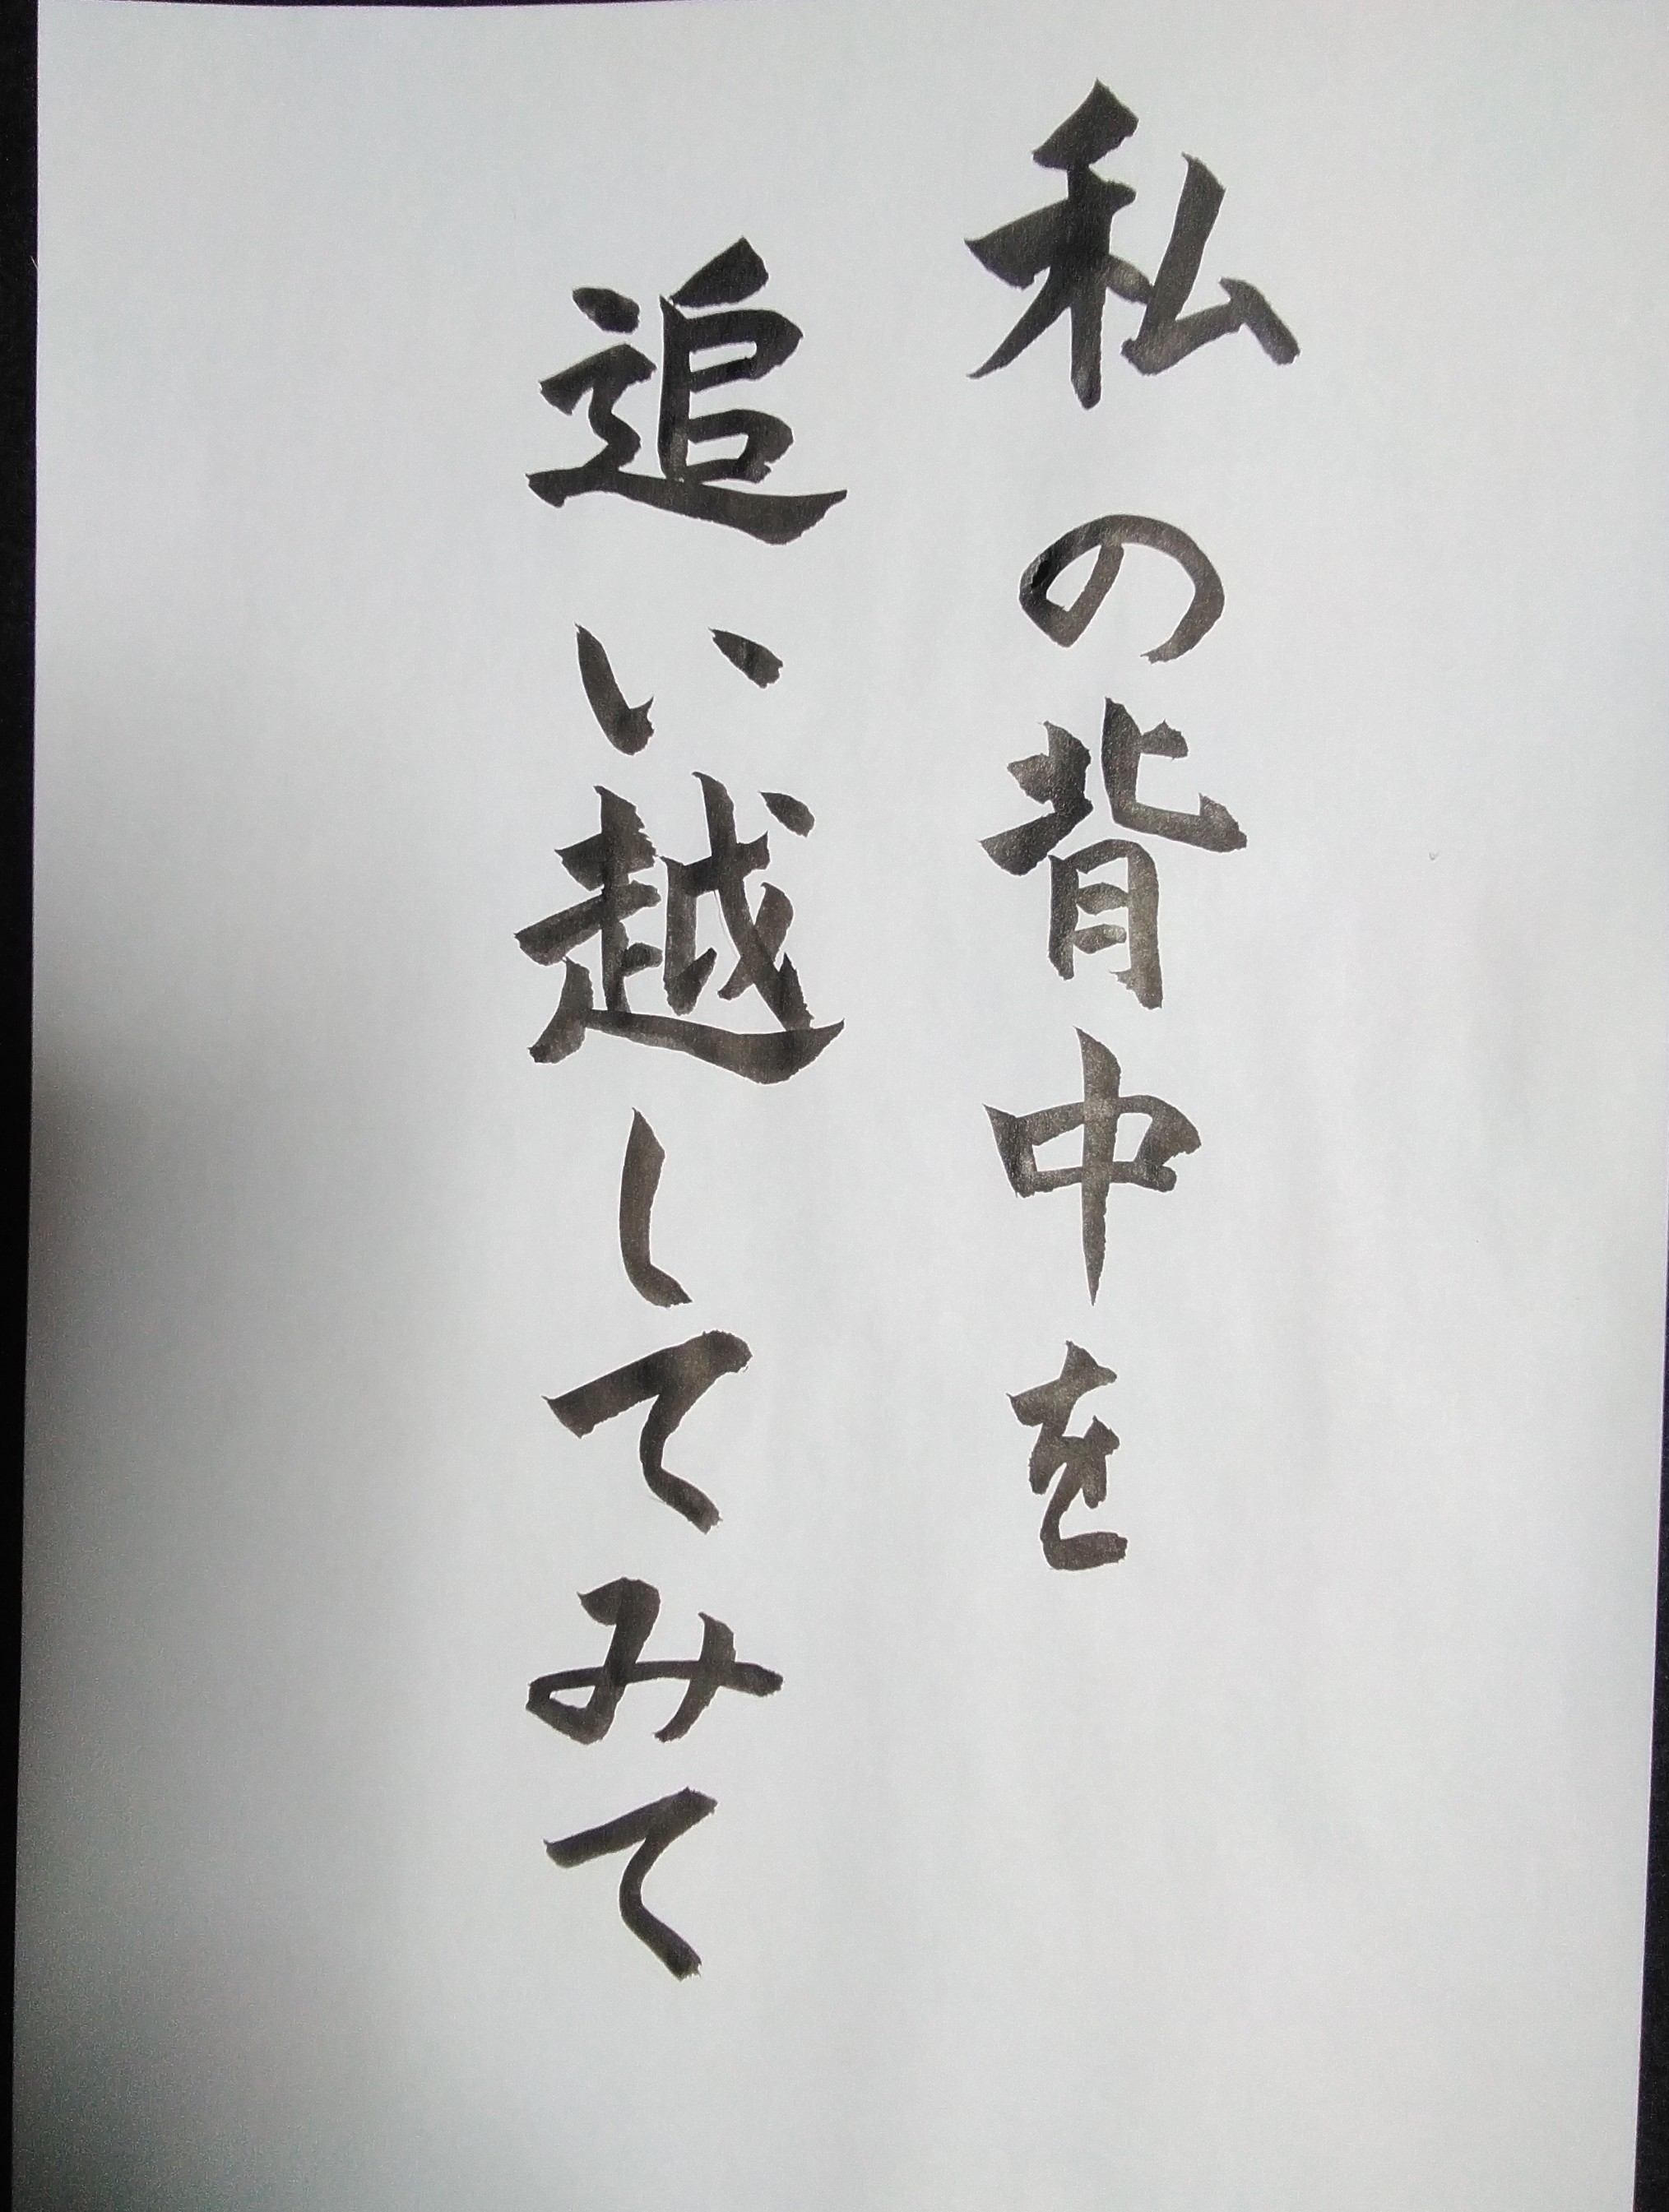 私の背中を
追い越してみて